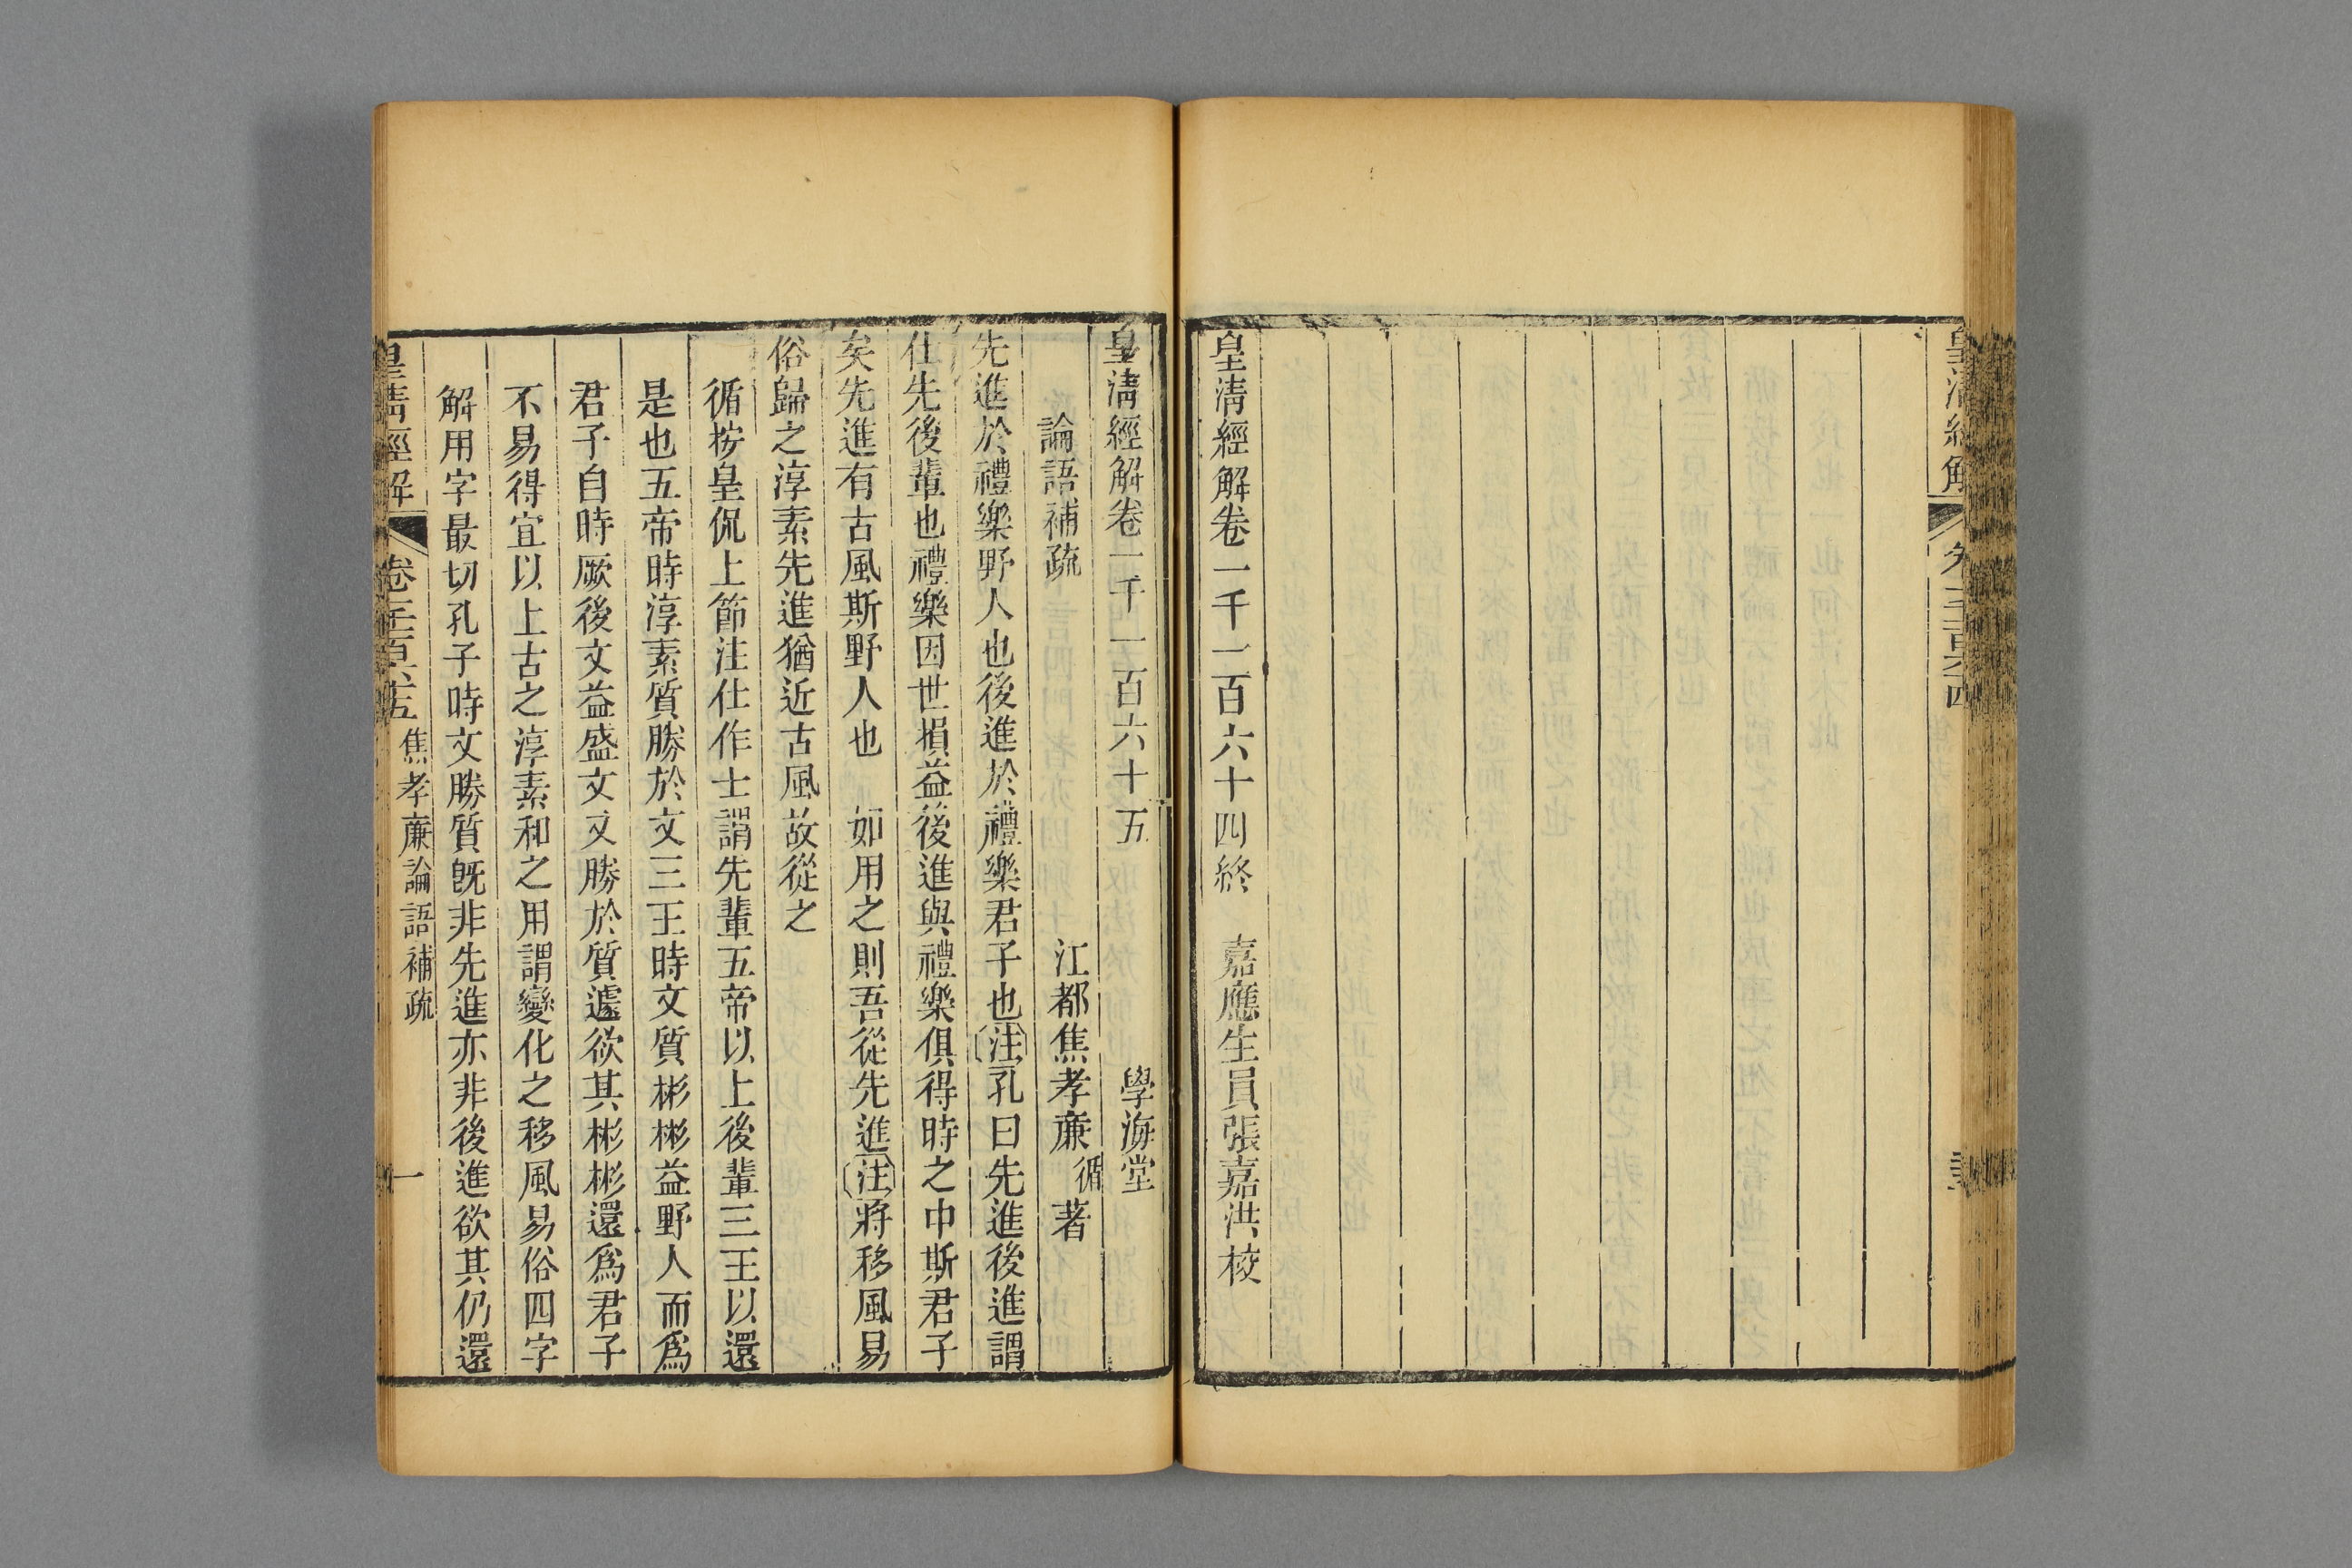 皇清經解
皇清經解卷一千一百六十四終　嘉應生員張嘉洪校
皇清經解卷一千一百六十五　學海堂
論語補疏　江都焦孝廉循著
先進於禮樂野人也後進於禮樂君子也注孔曰先進後進謂
仕先後輩也禮樂因世損益後進與禮樂俱得時之中斯君子
矣先進有古風斯野人也　如用之則吾從先進注將移風易
俗歸之淳素先進猶近古風故從之
循按皇侃上節注仕作士謂先輩五帝以上後輩三王以還
是也五帝時淳素質勝於文三王時文質彬彬益野人而爲
君子自時厥後文益盛文文勝於質遽欲其彬彬還爲君子
不易得宜以上古之淳素和之用謂變化之移風易俗四字
解用字最切孔子時文勝質既非先進亦非後進欲其仍還
皇清經解　卷一千一百六十五　焦孝廉論語補疏　一